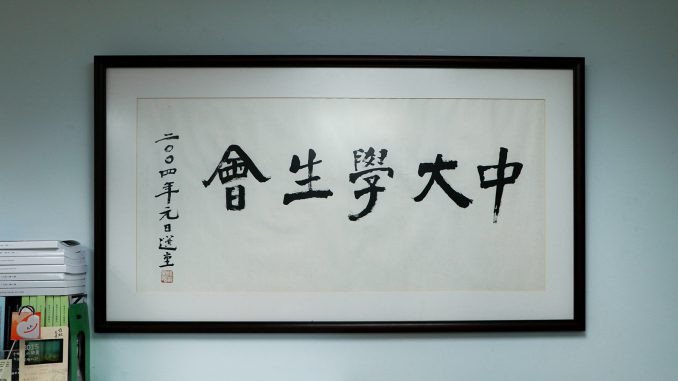 中大學生會
二〇〇四年元日選堂
2015